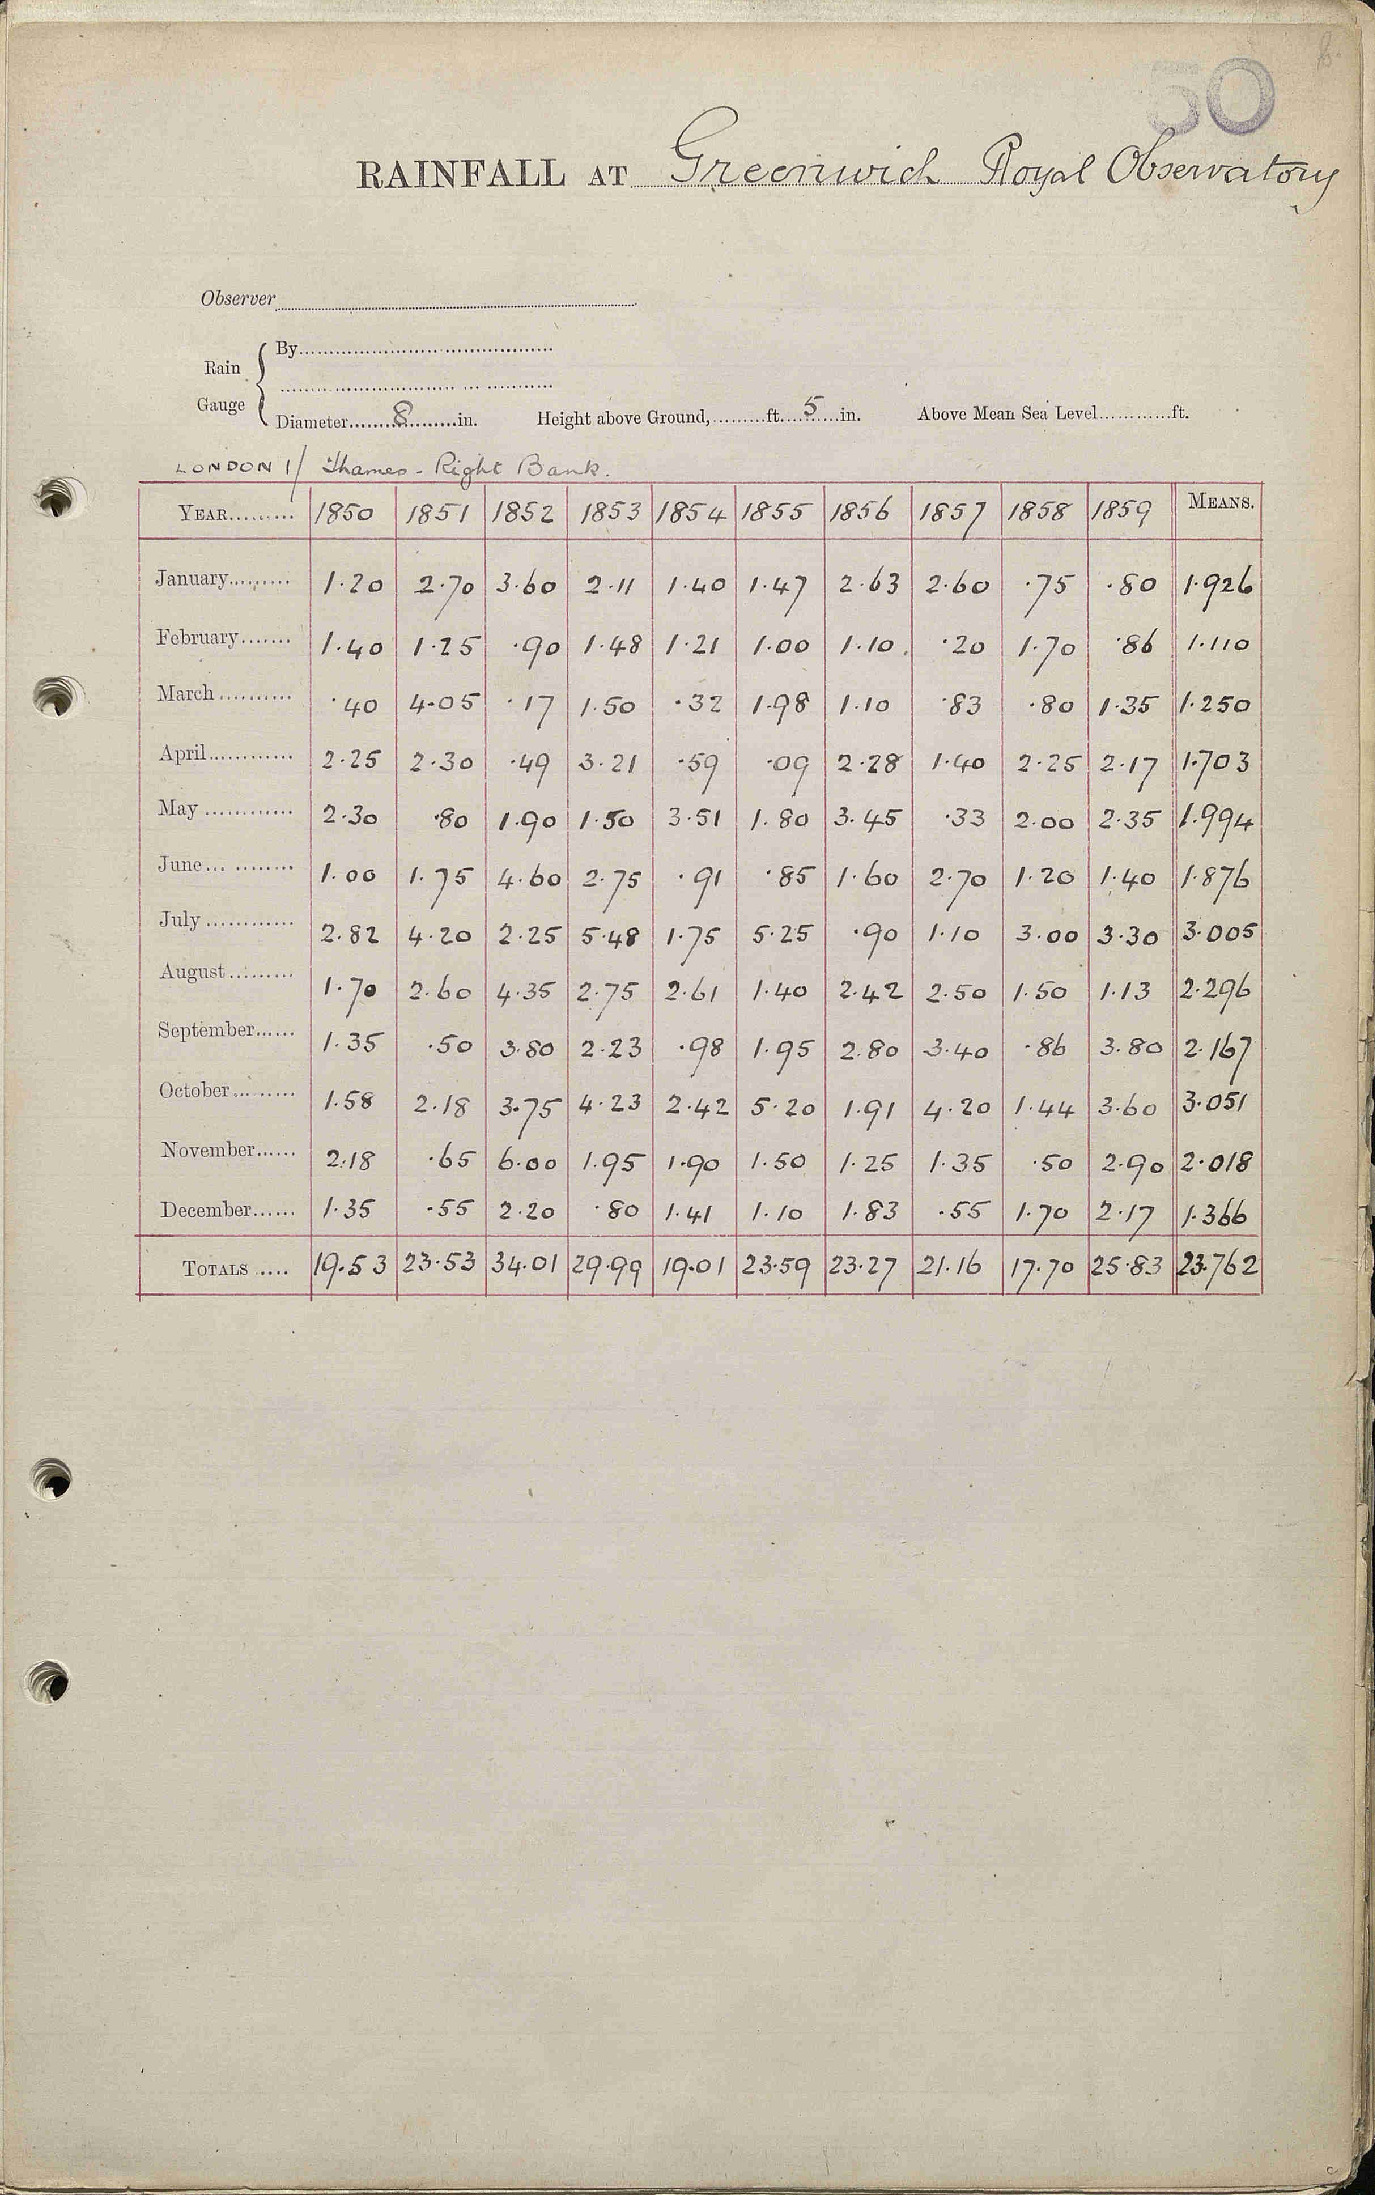 50
RAINFALL AT Greenwich Royal Observatory
Observer
Rain Gauge { By
Diameter 8 in. Height above Ground, ft. 5 in. Above Mean Sea Level ft.
LONDON 1/ Thames - Right Bank.
YEAR 1850 1851 1852 1853 1854 1855 1856 1857 1858 1859 MEANS.
January 1.20 2.70 3.60 2.11 1.40 1.47 2.63 2.60 .75 .80 1.926
February 1.40 1.25 .90 1.48 1.21 1.00 1.10 .20 1.70 .86 1.110
March .40 4.05 .17 1.50 .32 1.98 1.10 .83 .80 1.35 1.250
April 2.25 2.30 .49 3.21 .59 .09 2.28 1.40 2.25 2.17 1.703
May 2.30 .80 1.90 1.50 3.51 1.80 3.45 .33 2.00 2.35 1.994
June 1.00 1.75 4.60 2.75 .91 .85 1.60 2.70 1.20 1.40 1.876
July 2.82 4.20 2.25 5.48 1.75 5.25 .90 1.10 3.00 3.30 3.005
August 1.70 2.60 4.35 2.75 2.61 1.40 2.42 2.50 1.50 1.13 2.296
September 1.35 .50 3.80 2.23 .98 1.95 2.80 3.40 .86 3.80 2.167
October 1.58 2.18 3.75 4.23 2.42 5.20 1.91 4.20 1.44 3.60 3.051
November 2.18 .65 6.00 1.95 1.90 1.50 1.25 1.35 .50 2.90 2.018
December 1.35 .55 2.20 .80 1.41 1.10 1.83 .55 1.70 2.17 1.366
TOTALS 19.53 23.53 34.01 29.99 19.01 23.59 23.27 21.16 17.70 25.83 23.762